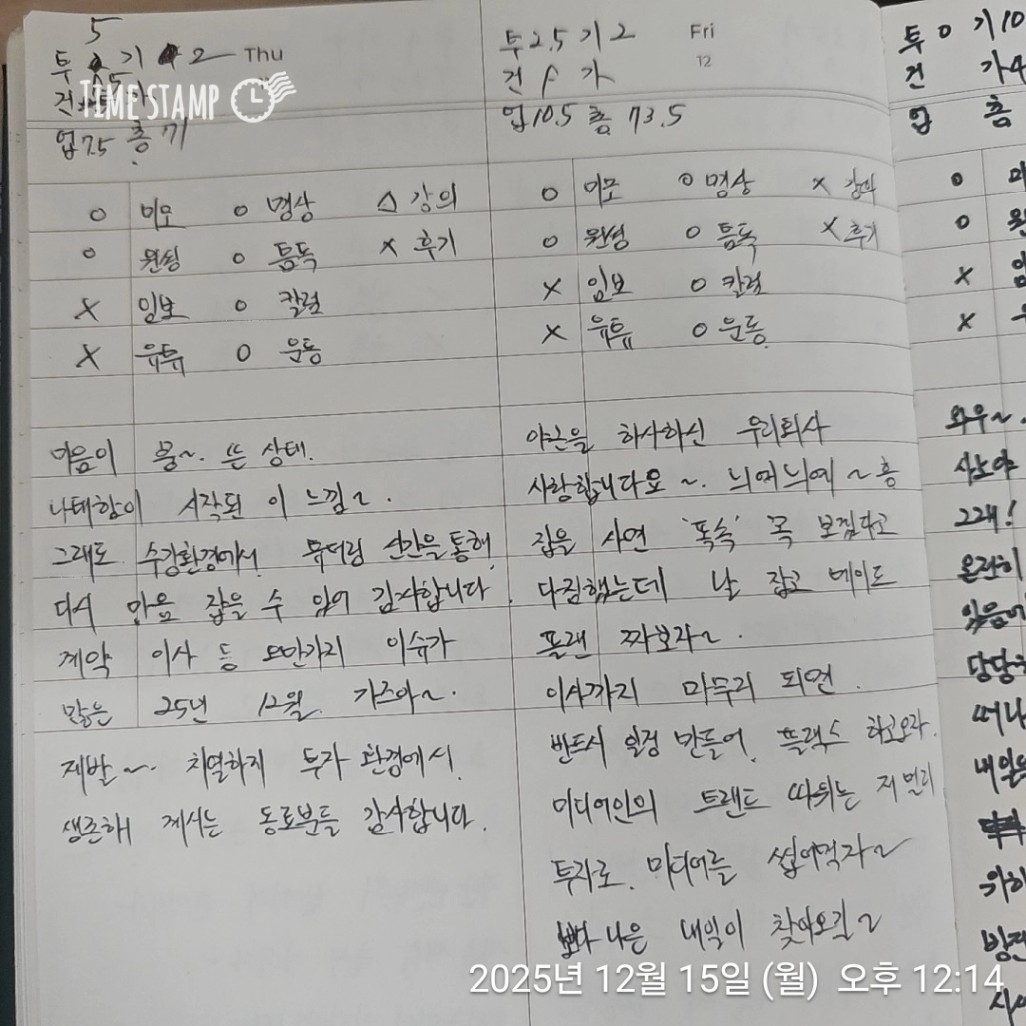 투 5 기 2 Thu
건 가
TIMESTAMP
업 7.5 총 71
o 미모 o 명상 △ 강의
o 원씽 o 틈독 x 후기
x 임보 o 칼럼
x 유튜 o 운동
마음이 붕~. 뜬 상태.
나태함이 시작된 이 느낌~.
그래도 수강환경에서. 튜터링 시간을 통해.
다시 마음 잡을 수 있어 감사합니다.
계약 이사 등 오만가지 이슈가
많은 25년 12월. 가즈아~.
제발~. 치열하지 투자 환경에서.
생존해 계시는 동료분들 감사합니다.
투 2.5 기 2 Fri
건 가 12
업 10.5 총 73.5
o 미모 o 명상 x 강의
o 원씽 o 틈독 x 후기
x 임보 o 칼럼
x 유튜 o 운동
야근을 하사하신 우리회사
사랑합니다요~. 늬예늬예~흥
집을 사면 '폭속' 꼭 보겠다고
다짐했는데 날 잡고 데이트
플랜 짜보라~.
이사까지 마무리 되면.
반드시 일정 만들어. 플렉스 하고오라.
미디어인의 트렌드 따위는 저 멀리
투자로. 미디어를 씹어먹자~
보다 나은 내일이 찾아오길~
투 0 기 10
건 가 4
업 총
o
o
x
x
와우~.
그래!
온전히
있음에
내일은
2025년 12월 15일 (월) 오후 12:14